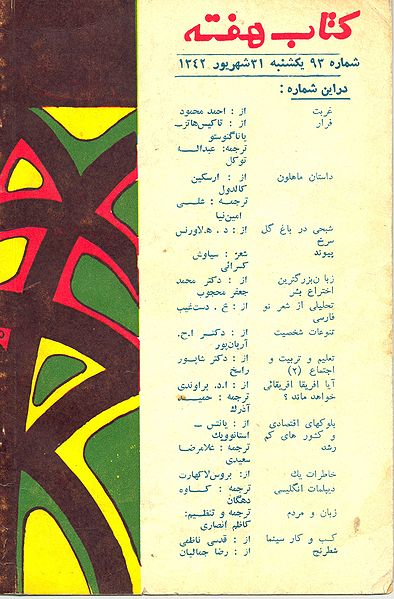 کتاب هفته
شماره ۹۳ یکشنبه ۳۱ شهریور ۱۳۴۲
در این شماره :
غربت از : احمد محمود
فرار از : تاکیس هاتز ـ
یاناگنوستو
ترجمه: عبدالـــه
توکل
داستان ماهلون از : ارسکین
کالدول
ترجمــه : علـــی
امین‌نیا
شبحی در باغ گل از : د . ه. لاورنس
سرخ
پیوند شعر: سیاوش
کسرائی
زبان بزرگترین از : دکتر محمد
اختراع بشر جعفر محجوب
تحلیلی از شعر نو از : ع . دست‌غیب
فارسی
تنوعات شخصیت از : دکتــر ا.ح.
آریان‌پور
تعلیم و تربیت و از : دکتر شاپور
اجتماع (۲) راسخ
آیا افریقا افریقائی از : ا.د. براوندی
خواهد ماند ؟ ترجمه : حمیــد
آذرک
بلوکهای اقتصادی از : یانتس ـ
و کشور های کم استانوویک
رشد ترجمه : غلامرضا
سعیدی
خاطرات یك از: بروس لاکهارت
دیپلمات انگلیسی ترجمه : کــاوه
دهگان
زبان و مردم ترجمه و تنظیم:
کاظم انصاری
کسب و کار سینما از : قدسی ناظمی
شطرنج از : رضا جمالیان